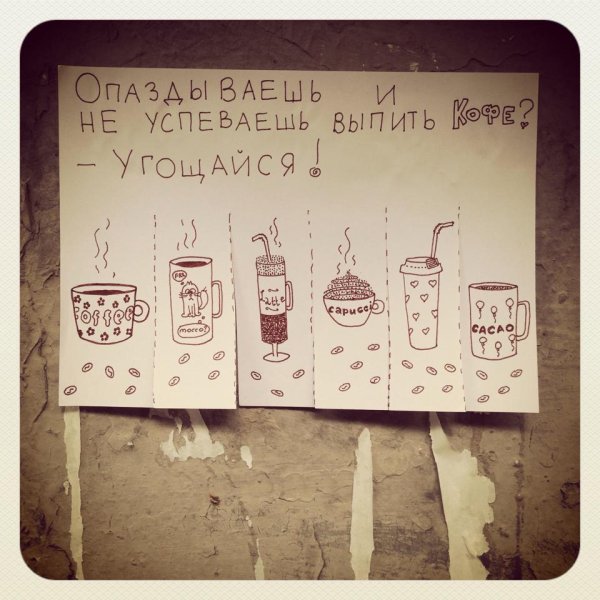 Опаздываешь и
не успеваешь выпить кофе?
– Угощайся!
COFFEE
FRR
mocco?
Latte
capucci
CACAO